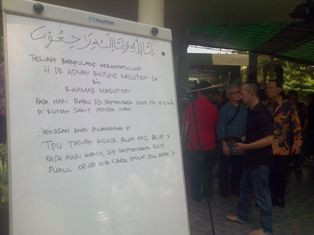 إنا لله وإنا إليه راجعون
TELAH BERPULANG KERAHMATULLAH
H DR. ADNAN BUYUNG NASUTION SH
bin
RAHMAD NASUTION
PADA HARI RABU, 23 SEPTEMBER 2015
DI RUMAH SAKIT PONDOK INDAH
JENAZAH AKAN DIMAKAMKAN DI
TPU TANAH KUSIR BLOK
PADA HARI KAMIS, 24 SEPTEMBER 2015
PUKUL WIB